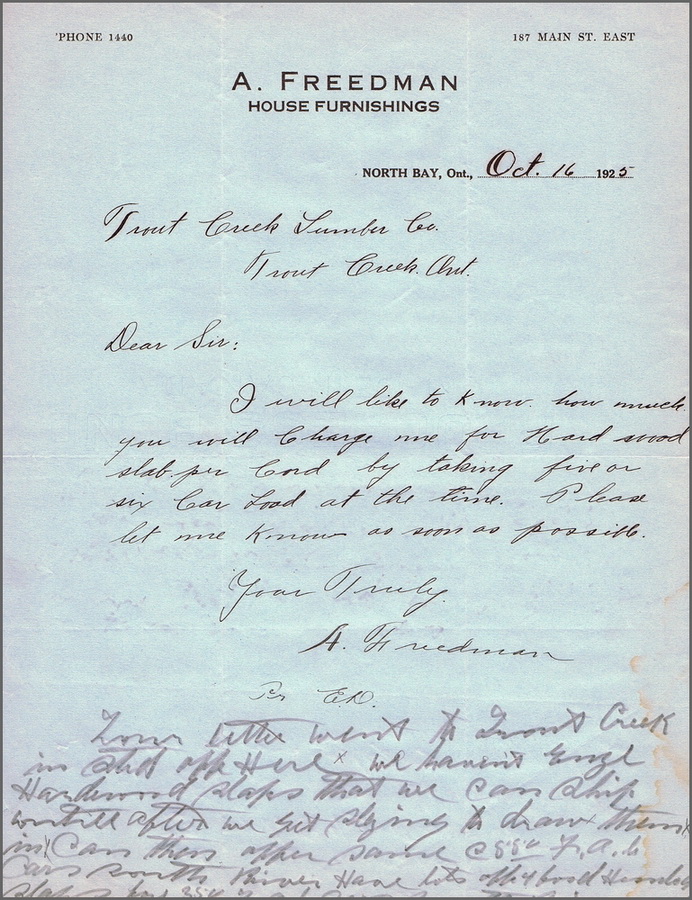 'PHONE 1440
187 MAIN ST. EAST
A. FREEDMAN
HOUSE FURNISHINGS
NORTH BAY, Ont., Oct. 16 1925
Trout Creek Lumber Co.
Trout Creek. Ont.
Dear Sir:
I will like to Know. how much.
you will Charge me for Hard wood
slab. per Cord by taking five or
six Car Load at the time. Please
let me Know as soon as possible.
Your Truly.
A. Freedman
Pr E.D.
Your letter went to Trout Creek
in sted off Here x we havent Enge
Hardwood slaps that we can ship
until after we get slying to draw them
in Cars then offer same F.O.B.
Cars south River Have lots off
slaps for